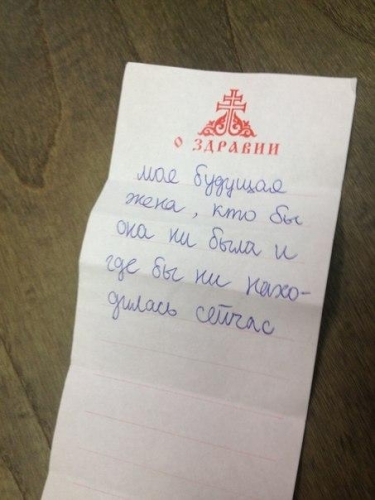 О ЗДРАВИИ
моя будущая
жена, кто бы
она ни была и
где бы ни нахо-
дилась сейчас